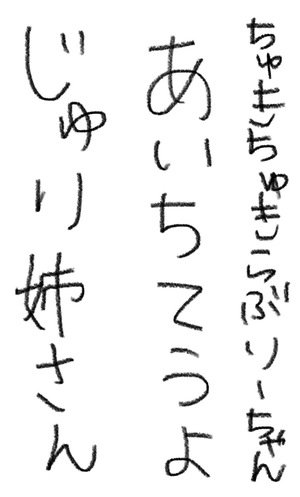 ちゅきちゅきらぶりーちゃん
あいちてうよ
じゅり姉さん